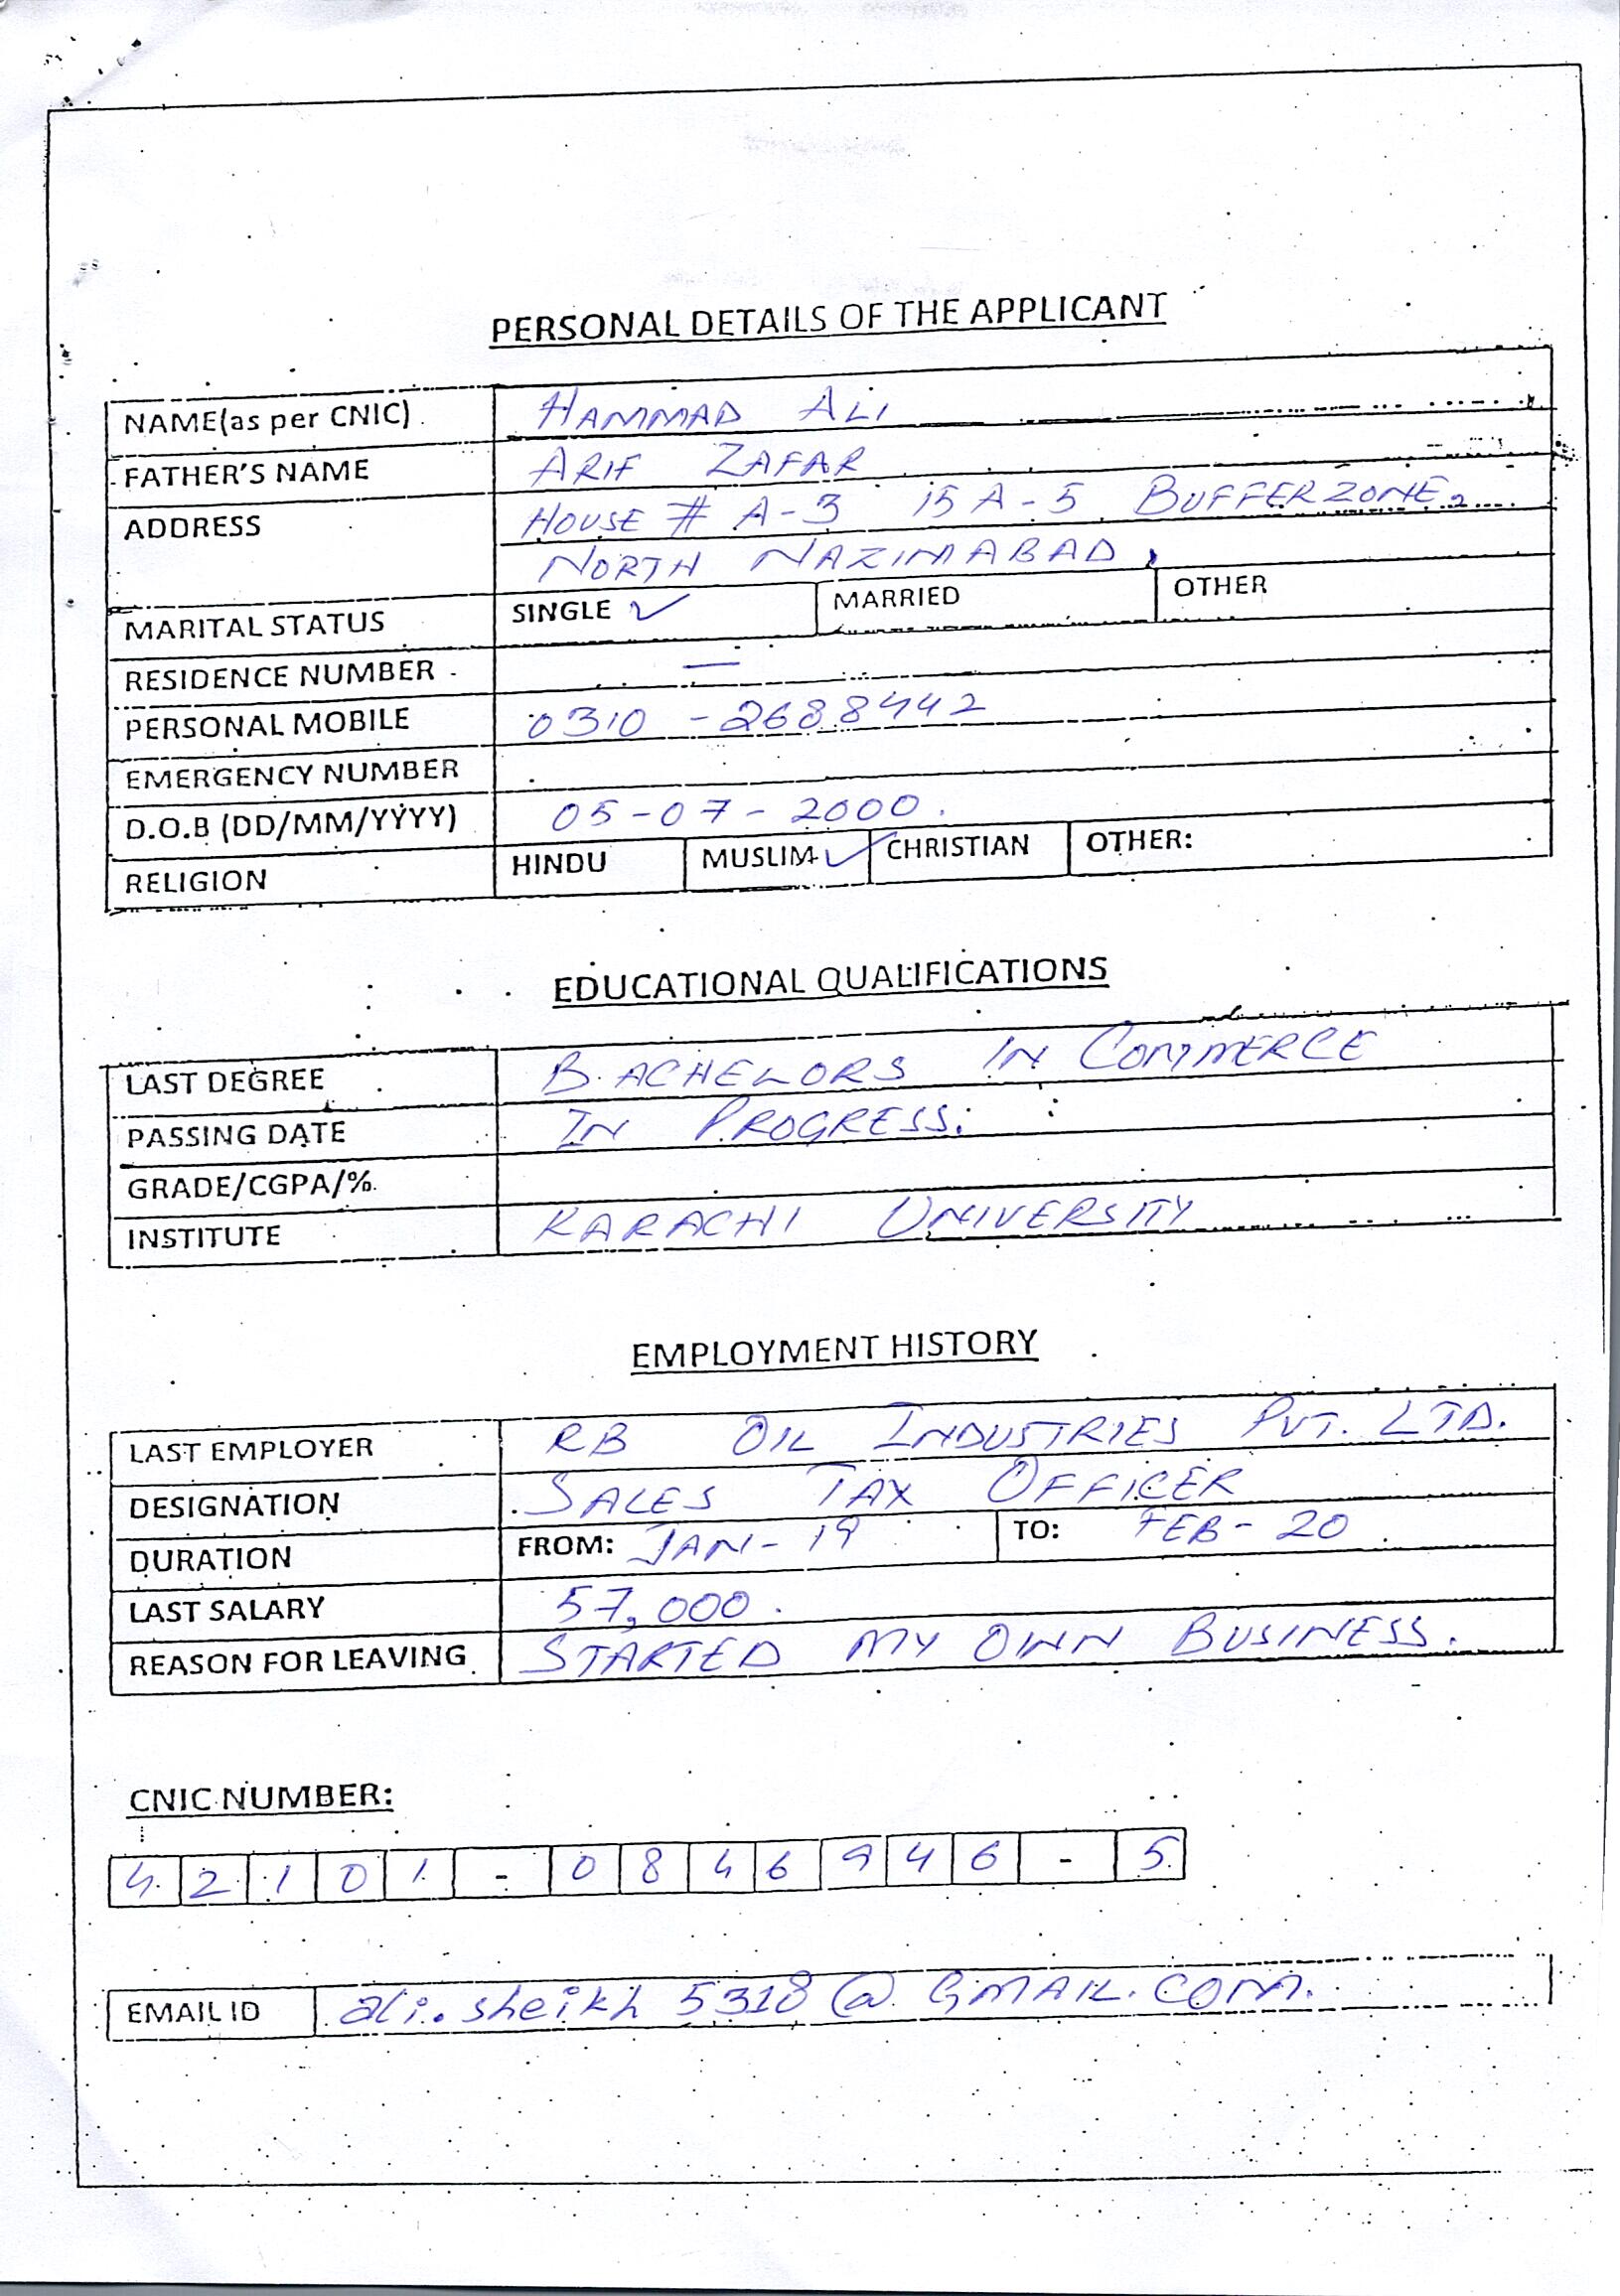 PERSONAL DETAILS OF THE APPLICANT
NAME(as per CNIC) HAMMAD ALI
FATHER'S NAME ARIF ZAFAR
ADDRESS HOUSE # A-3 15 A-5 BUFFERZONE,
NORTH NAZIMABAD.
MARITAL STATUS SINGLE ✓ MARRIED OTHER
RESIDENCE NUMBER —
PERSONAL MOBILE 0310 - 2688442
EMERGENCY NUMBER
D.O.B (DD/MM/YYYY) 05-07-2000.
RELIGION HINDU MUSLIM ✓ CHRISTIAN OTHER:
EDUCATIONAL QUALIFICATIONS
LAST DEGREE BACHELORS IN COMMERCE
PASSING DATE IN PROGRESS.
GRADE/CGPA/%
INSTITUTE KARACHI UNIVERSITY
EMPLOYMENT HISTORY
LAST EMPLOYER RB OIL INDUSTRIES PVT. LTD.
DESIGNATION SALES TAX OFFICER
DURATION FROM: JAN-19 TO: FEB-20
LAST SALARY 57,000.
REASON FOR LEAVING STARTED MY OWN BUSINESS.
CNIC NUMBER:
42101-0846946-5
EMAIL ID ali.sheikh5318@GMAIL.COM.